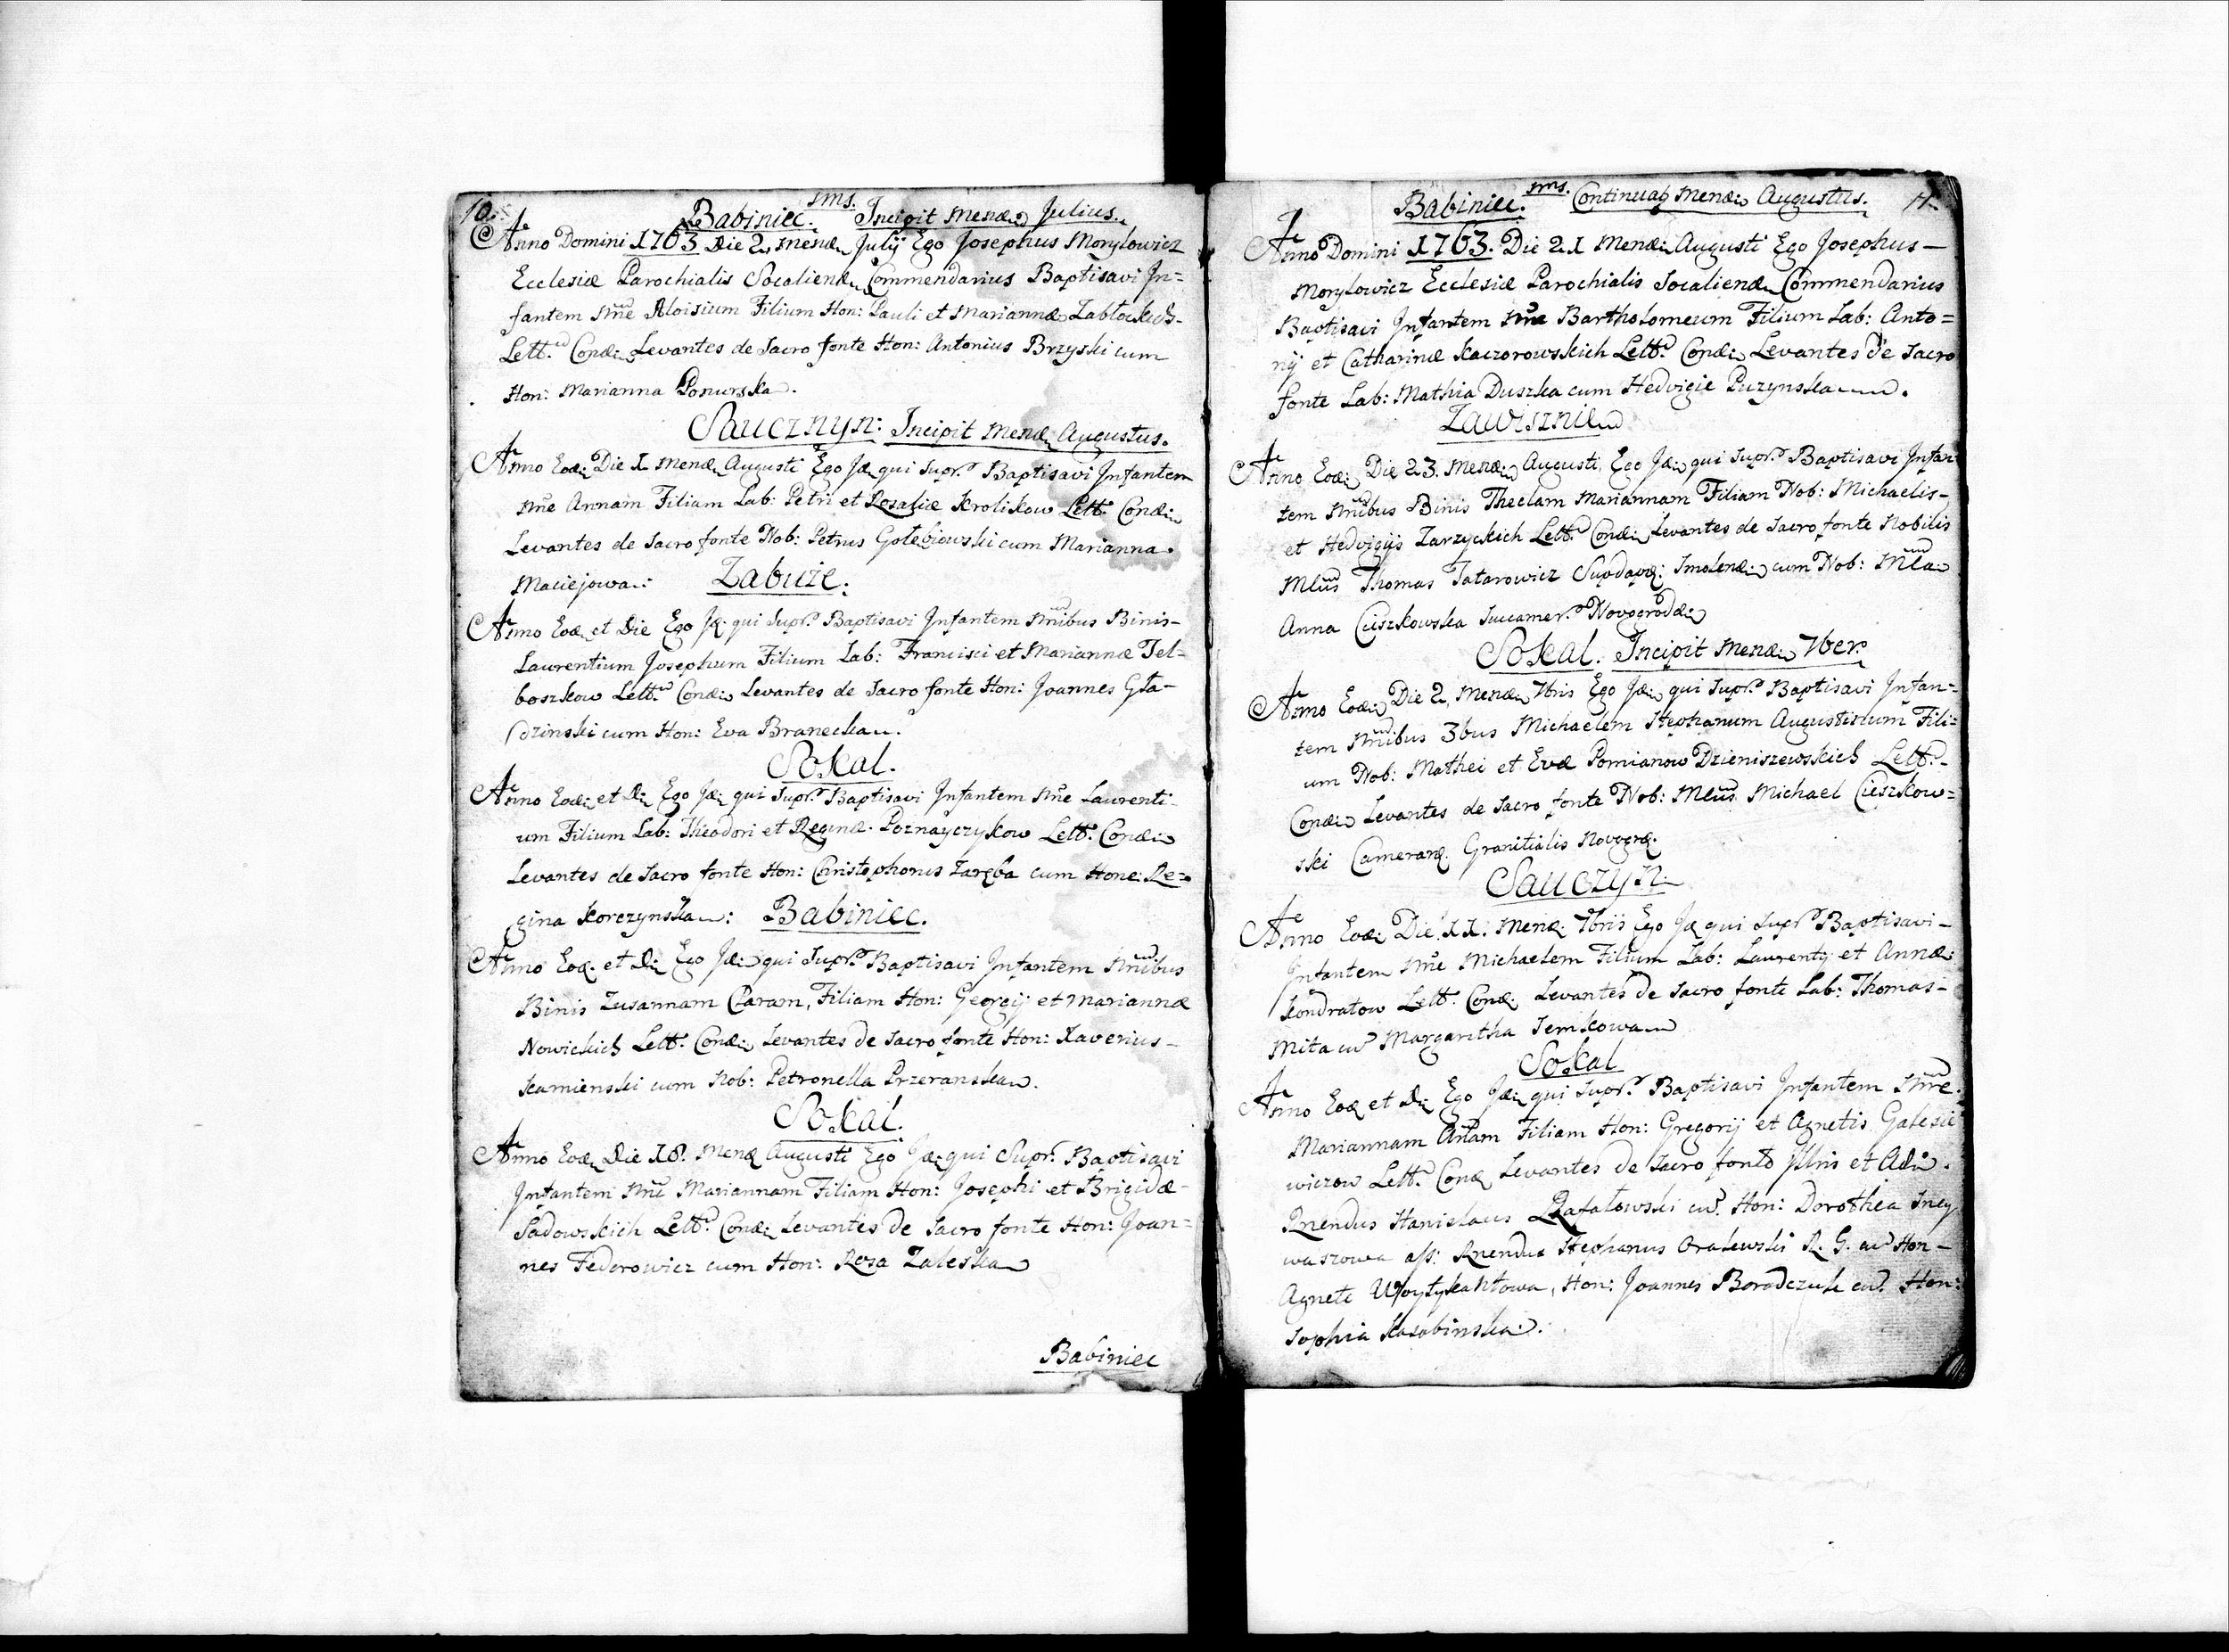 10.
sms.
Babiniec. Incipit Mens. Julius.
Anno Domini 1763 Die 2 Mens. July Ego Josephus Morylowicz
Ecclesiæ Parochialis Socaliens. Commendarius Baptisavi In=
fantem Nne Aloisium Filium Hon: Pauli et Mariannæ Zabłockich-
Lett. Cond: Levantes de Sacro fonte Hon: Antonius Brzyski cum
Hon: Marianna Ponurska.
Saucznyn: Incipit Mens. Augustus.
Anno Eod: Die 1 Mens. Augusti Ego Id. qui Supr. Baptisavi Infantem
Nne Annam Filiam Lab: Petri et Rosaliæ Krolikow Lett. Cond:
Levantes de Sacro fonte Nob: Petrus Gołebiowski cum Marianna
Maciejowa: Zabuże.
Anno Eod. et Die Ego Id. qui Supr. Baptisavi Infantem Nnibus Binis-
Laurentium Josephum Filium Lab: Francisci et Mariannæ Tel=
boszkow Lett. Cond: Levantes de Sacro fonte Hon: Joannes Gła-
dzinski cum Hon: Eva Branecka.
Sokal.
Anno Eod: et Di Ego Id: qui Supr. Baptisavi Infantem Nne Laurenti-
um Filium Lab: Theodori et Reginæ Poznayczykow Lett. Cond:
Levantes de Sacro fonte Hon: Christophorus Zaręba cum Hone: Re=
gina Korczynska: Babiniec.
Anno Eod. et Di Ego Id: qui Supr. Baptisavi Infantem Nnibus
Binis Zusannam Claram, Filiam Hon: Georgij et Mariannæ
Nowickich Lett. Cond: Levantes de Sacro fonte Hon: Xaverius-
Kamienski cum Nob: Petronella Przeranska.
Sokal.
Anno Eod. Die 18. Mens Augusti Ego Id: qui Supr. Baptisavi
Infantem Nne Mariannam Filiam Hon: Josephi et Brigidæ-
Sadowskich Lett. Cond: Levantes de Sacro fonte Hon: Joan=
nes Federowicz cum Hon: Rosa Zaleska
Babiniec
sms.
Babiniec. Continuat Mens: Augustus. 11.
Anno Domini 1763. Die 21 Mens: Augusti Ego Josephus-
Morylowicz Ecclesiæ Parochialis Socaliens. Commendarius
Baptisavi Infantem Nne Bartholomeum Filium Lab: Anto=
nij et Catharinæ Kaczorowskich Lett. Cond: Levantes de Sacro
fonte Lab: Mathia Duszka cum Hedvigie Puzynska.
Zawisznie
Anno Eod: Die 23. Mens: Augusti, Ego Id: qui Supr. Baptisavi Infan
tem Nnibus Binis Theclam Mariannam Filiam Nob: Michaelis-
et Hedvigijs Zarzyckich Lett. Cond: Levantes de Sacro fonte Nobilis
Mlus Thomas Tatarowicz Supdap: Smolens: cum Nob: Mla
Anna Cieszkowska Succamer. Novogrods:
Sokal. Incipit Mens: 7ber.
Anno Eod: Die 2, Mens. 7bris Ego Id: qui Supr. Baptisavi Infan=
tem Nnibus 3bus Michaelem Stephanum Augustinum Fili=
um Nob: Mathei et Evæ Pomianow Dzieniszewskich Lett.-
Cond: Levantes de Sacro fonte Nob: Mlus Michael Cieszkow=
ski Camerar. Granitialis Novogr.
Sauczyn:
Anno Eod: Die 11. Mens. 7bris Ego Id qui Supr Baptisavi-
Infantem Nne Michaelem Filium Lab: Laurenty et Annæ
Kondratow Lett. Cond. Levantes de Sacro fonte Lab: Thomas-
Mita cu Margaritha Semkowa
Sokal
Anno Eod et Di Ego Id: qui Supr. Baptisavi Infantem Nne.
Mariannam Annam Filiam Hon: Gregorij et Agnetis Galesie
wiczow Lett. Cond Levantes de Sacro fonte Illris et Ad.
Rnendus Stanislaus Rafałowski cu. Hon: Dorothea
waszowa ass: Rnendus Stephanus Oralewski R. G. cu Hon-
Agnete Woytykaktowa, Hon: Joannes Borodczuk cu. Hon:
Sophia Kasabinska.